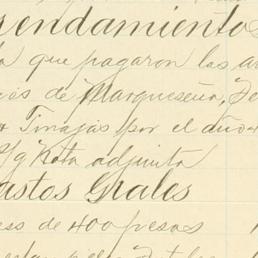 rendamientos
que pagaron las
de Marqueseña, Fe
Tinajas por el año
S/g Nota adjunta
astos Grales
ess de 400 pesos